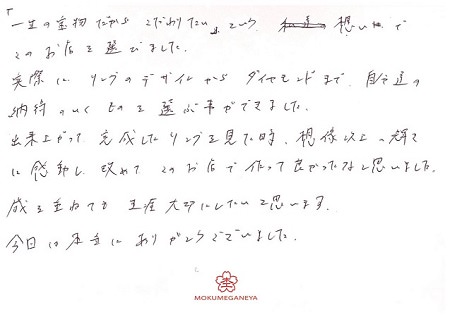 「一生の宝物だからこだわりたい」という想いで
このお店を選びました。
実際に リングのデザインから ダイヤモンドまで、自分達の
納得のいくものを選ぶ事ができました。
出来上がって 完成したリングを見た時、想像以上の輝き
に感動し 改めて このお店で作って良かったなと思いました。
歳を重ねても 生涯大切にしたいと思います。
今日は本当にありがとうございました。
MOKUMEGANEYA